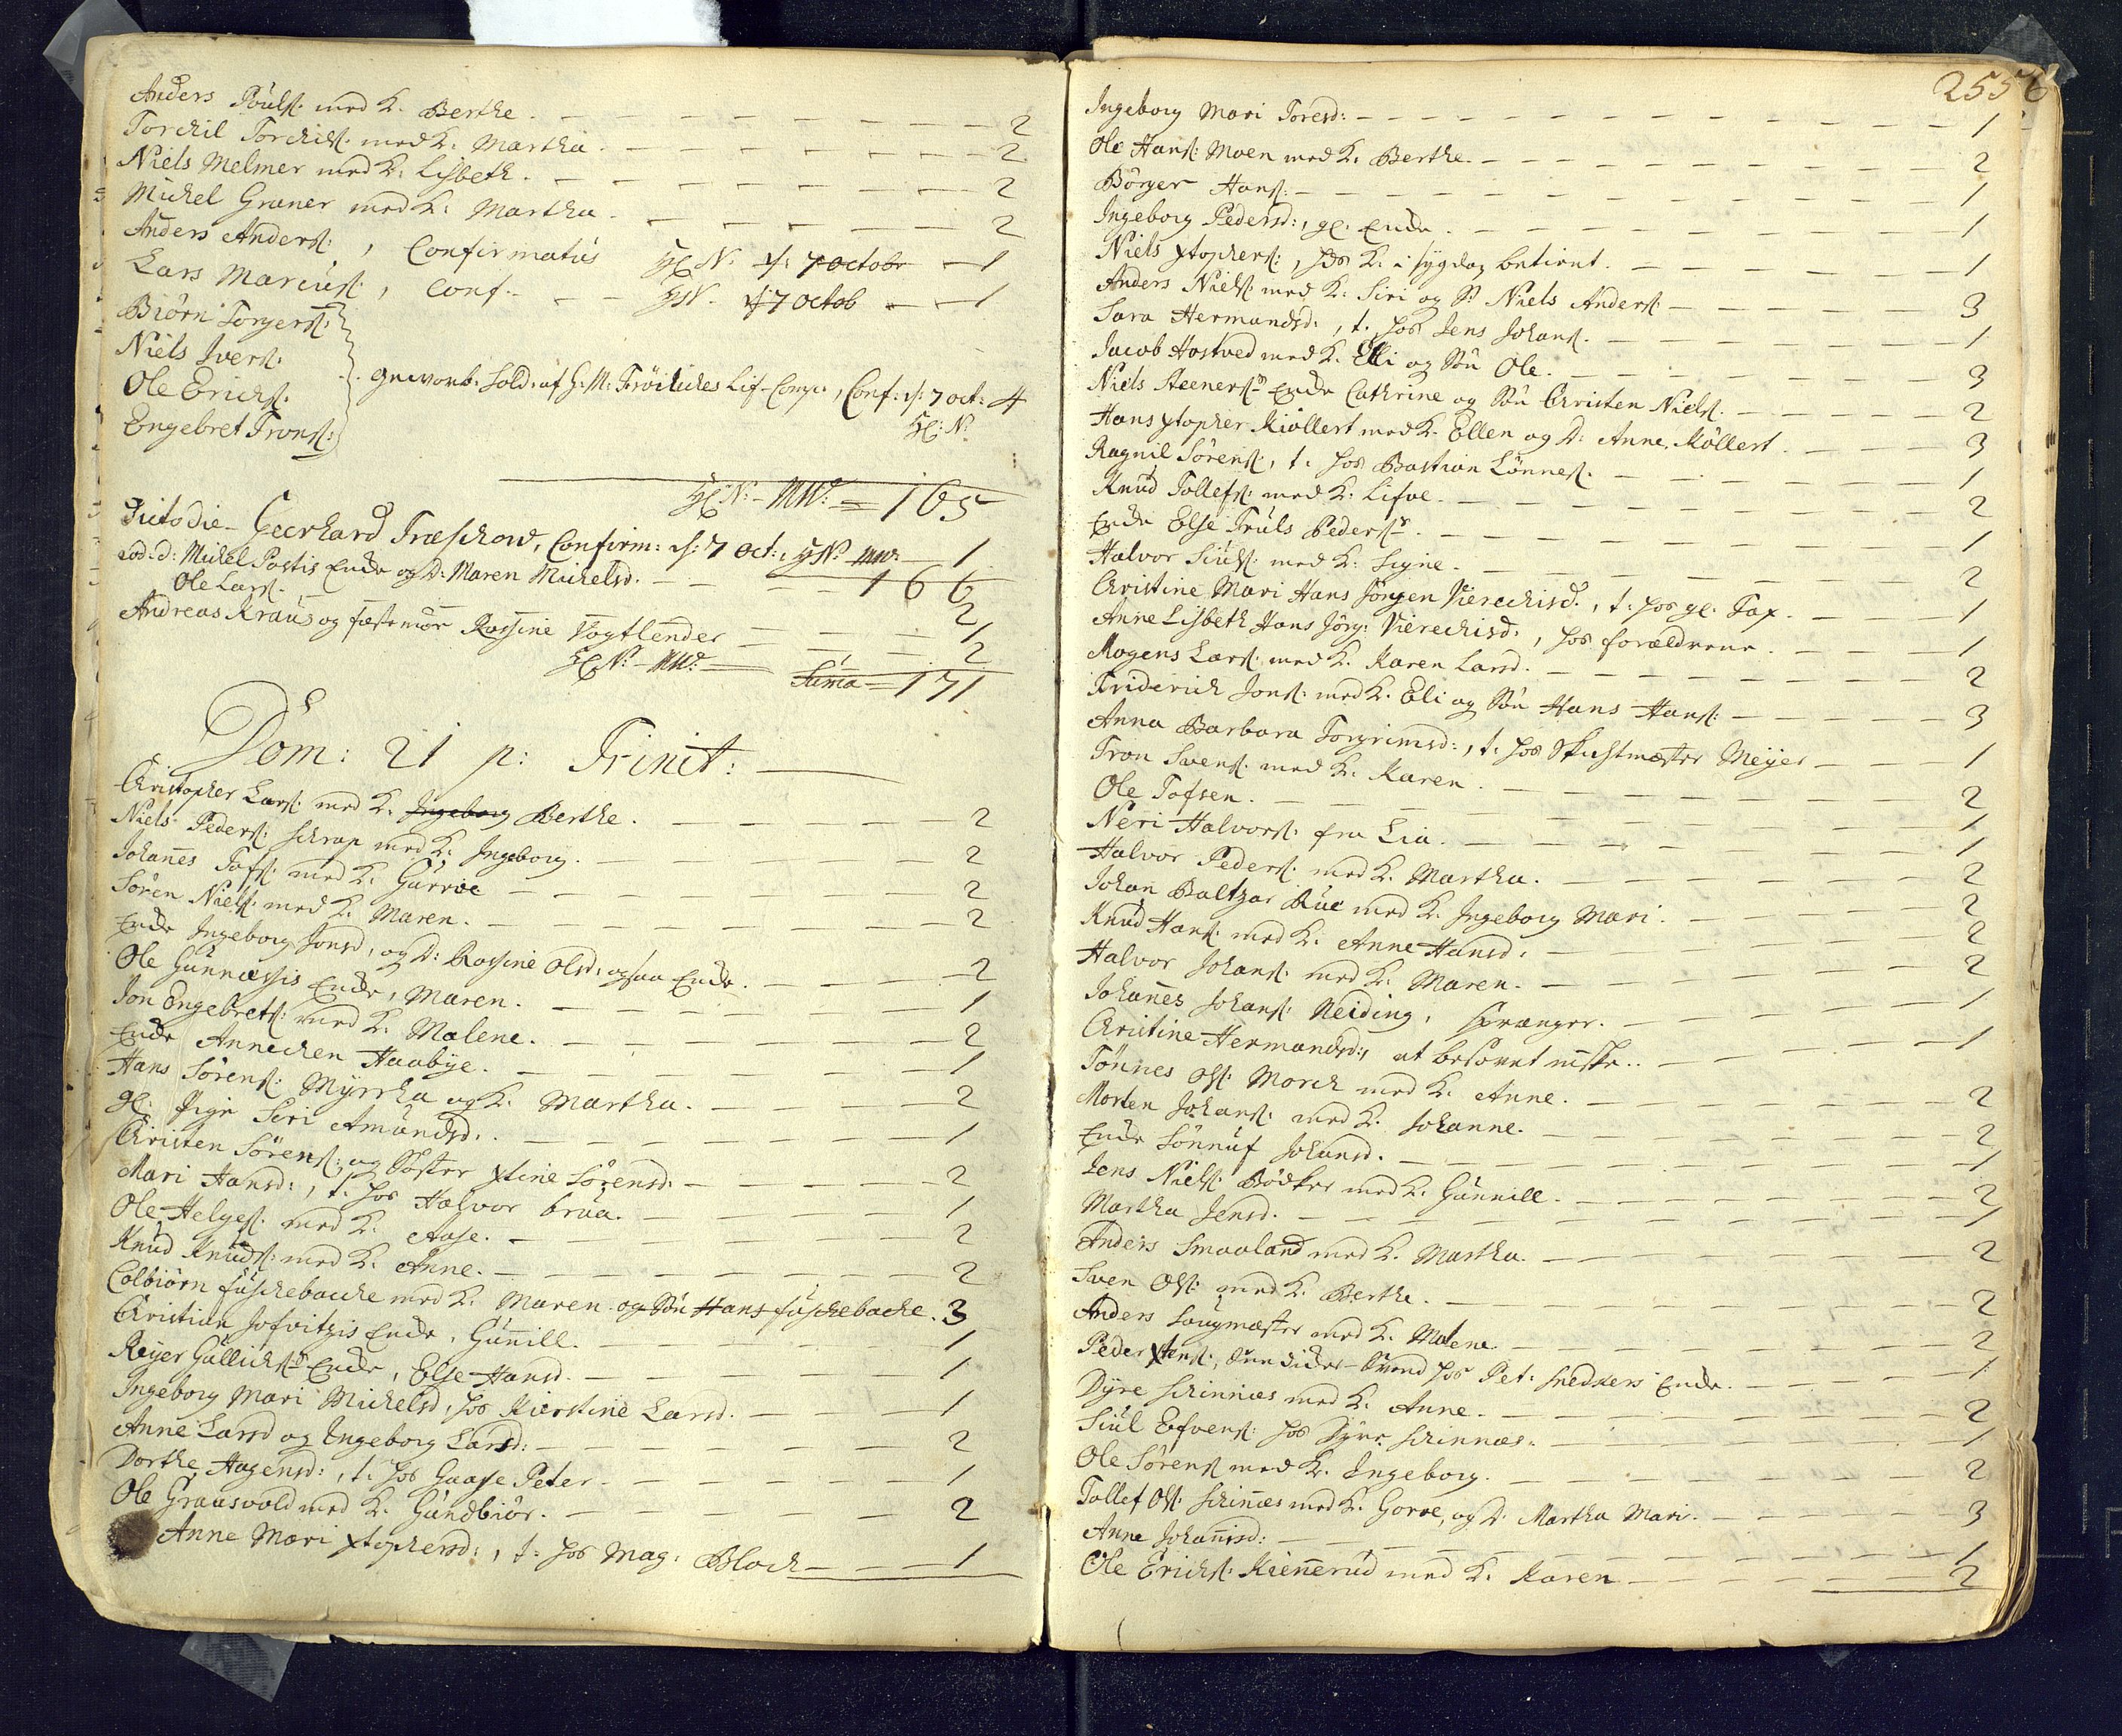 Anders Pouls: med K. Berthe. 2
Torchil Torchils: med K: Martha. 2
Niels Melmer med K: Lisbeth. 2
Michel Graner med K: Martha. 2
Anders Anders:, Confirmatus H N: d: 7 octobr 1
Lars Marcus:, Conf. H N. d: 7 octob 1
Biörn Torgers:
Niels Ivers:
Ole Erichs: gevorb: Sold: af H: M: Fröiliches Lif-Comp:, Conf: d: 7 oct: 4
Engebret Trons: H: N.
H N: MW: = 165
Dicto die Geerhard Træschow, Confirm: d: 7 oct:, H N: MW: 1
166
eod: d: Michel Postis Encke og D: Maren Michelsd. 2
Ole Lars: 1
Andreas Kraus og festemöe Rossine Vogtlender 2
H N: MW: Suma = 171
Dom: 21 p: Trinit:
Christopher Lars: med K. Ingeborg Berthe. 2
Niels Peders: Schrap med K: Ingeborg. 2
Johannes Tofs: med K. Gurroe 2
Sören Niels: med K. Maren. 2
Encke Ingeborg Jonsd, og D: Rossine Olsd: ogsaa Encke. 2
Ole Gunnæssis Encke, Maren. 1
Jon Engebrets: med K. Malene. 2
Encke Annechen Haabye. 1
Hans Sörens: Myrrha og K. Martha. 2
gl. Pige Siri Amundsd: 1
Christen Sörens: og Söster xtine Sörensd: 2
Mari Hansd:, t. hos Halvor braa. 1
Ole Helges: med K. Aase. 2
Knud Knuds: med K. Anne. 2
Colbiörn fuschebache med K. Maren og Sön Hans fuschebache. 3
Christian Josvitzis Encke, Gunnill. 1
Reyer Gullichs: Encke, Else Hansd. 1
Ingeborg Mari Michelsd, hos Kierstine Larsd. 1
Anne Larsd og Ingeborg Larsd: 2
Dorthe Aagensd:, t. hos Gaasse Peter 1
Ole Grausvold med K. Gundbiör. 2
Anne Mari xtophersd:, t: hos Mag: Bloch 1
255
Ingeborg Mari Toresd: 1
Ole Hans: Moen med K. Berthe. 2
Börger Hans: 1
Ingeborg Pedersd:, gl. Encke. 1
Niels xtophers:, hos K. i sygdog betient. 1
Anders Niels: med K: Siri og S: Niels Anders: 3
Sara Hermandsd:, t. hos Jens Johans: 1
Jacob Hostved med K. Elli og Sön Ole. 3
Niels Steeners: Encke Cathrine og Sön Christen Niels: 2
Hans xtopher Kiöllert med K. Ellen og D: Anne Köllert 3
Ragnil Sörens:, t. hos Bastian Lönnes: 1
Knud Tollefs: med K: Lisve. 2
Encke Else Truls Peders: 1
Halvor Siuls: med K: Signe. 2
Christine Mari Hans Jörgen Vierechisd:, t: hos gl. Fax. 1
Anne Lisbeth Hans Jörg: Vierechisd:, hos forældrene. 1
Mogens Lars: med K. Karen Larsd. 2
Friderich Jons: med K. Eli og Sön Hans Hans: 3
Anna Barbara Torgrimsd:, t: hos Skichtmester Meyer 1
Tron Svens: med K. Karen. 2
Ole Tofsen. 1
Neri Halvors: fra Lia. 1
Halvor Peders: med K. Martha. 2
Johan Baltzar Rue med K. Ingeborg Mari. 2
Knud Hans: med K. Anne Hansd: 2
Halvor Johans: med K: Maren. 2
Johannes Johans: Neiding, sprenger. 1
Christine Hermandsd:, et besovet niste. 1
Tönnes Ols: Morch med K. Anne. 2
Morten Johans: med K. Johanne. 2
Encke Sönnuf Johansd. 1
Jens Niels: Bödker med K. Gunnill. 2
Martha Jensd. 1
Anders Smaaland med K. Martha. 2
Sven Ols: med K. Berthe. 2
Anders Saugmester med K. Malene. 2
Peder xtens:, hos Pet: Snedkers Encke. 1
Dyre Schinnæs med K. Anne. 2
Siul Efvens: hos Dyre Schinnæs. 1
Ole Sörens med K. Ingeborg. 2
Tollef Ols: Schinnæs med K. Goroe, og D: Martha Mari. 3
Anne Johannisd: 1
Ole Erichs: Kiennerud med K. Karen 2